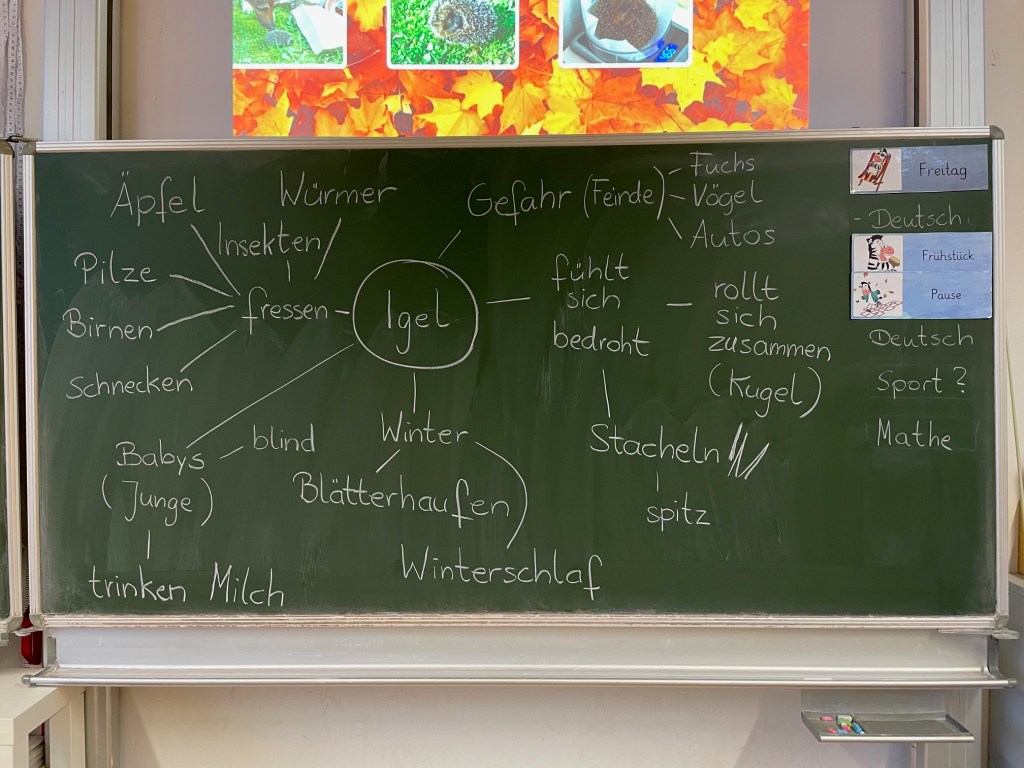 Äpfel
Würmer
Gefahr (Feinde)
Fuchs
Vögel
Autos
Insekten
Pilze
fressen
Birnen
Schnecken
Igel
fühlt
sich
bedroht
rollt
sich
zusammen
(Kugel)
Stacheln
spitz
Babys
(Junge)
blind
trinken Milch
Winter
Blätterhaufen
Winterschlaf
Freitag
- Deutsch
Frühstück
Pause
Deutsch
Sport?
Mathe